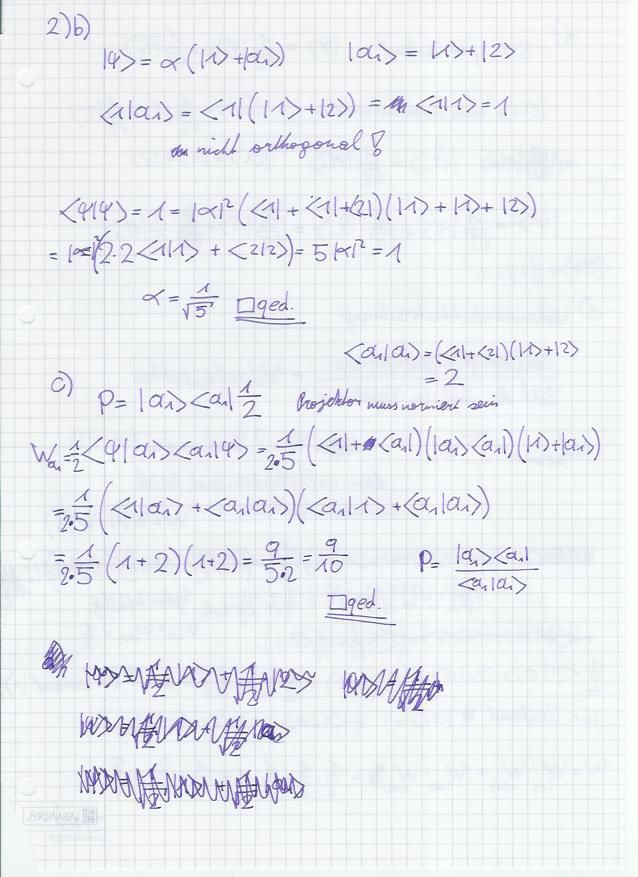 2)b)
|ψ> = α (|1> + |a₁>)    |a₁> = |1> + |2>
<1|a₁> = <1|(|1> + |2>) = <1|1> = 1
nicht orthogonal !
<ψ|ψ> = 1 = |α|² (<1| + <1| + <2|)(|1> + |1> + |2>)
= |α|² (2·2 <1|1> + <2|2>) = 5|α|² = 1
α = 1/√5  □ qed.
<a₁|a₁> = (<1| + <2|)(|1> + |2>
= 2
c) P = |a₁><a₁| 1/2  Projektor muss normiert sein
Wa₁ = 1/2 <ψ|a₁><a₁|ψ> = 1/2·5 (<1| + <a₁|)(|a₁><a₁|)(|1> + |a₁>)
= 1/2·5 (<1|a₁> + <a₁|a₁>)(<a₁|1> + <a₁|a₁>)
= 1/2·5 (1+2)(1+2) = 9/5·2 = 9/10    P = |a₁><a₁|/<a₁|a₁>
□ qed.
BRUNNEN